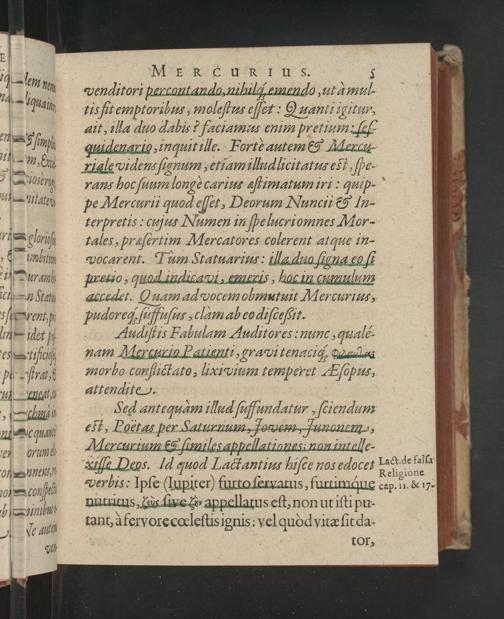 MERCURIUS. 5
venditori percontando, nihilq́, emendo, ut à mul-
tis fit emptoribus, molestus esset: Quanti igitur,
ait, illa duo dabis? faciamus enim pretium: ses-
quidenario, inquit ille. Fortè autem & Mercu-
riale videns signum, etiam illud licitatus est, spe-
rans hoc suum longè carius æstimatum iri: quip-
pe Mercurii quod esset, Deorum Nuncii & In-
terpretis: cujus Numen in spe lucri omnes Mor-
tales, præsertim Mercatores colerent atque in-
vocarent. Tum Statuarius: illa duo signa eo si
pretio, quod indicavi, emeris, hoc in cumulum
accedet. Quam ad vocem obmutuit Mercurius,
pudoreq́, suffusus, clàm ab eo discessit.
Audistis Fabulam Auditores: nunc, qualé-
nam Mercurio Patienti, gravi tenaciq́,
morbo conflictato, lixivium temperet Æsopus,
attendite.
Sed antequàm illud suffundatur, sciendum
est, Poëtas per Saturnum, Jovem, Junonem,
Mercurium & similes appellationes, non intelle-
xisse Deos. Id quod Lactantius hisce nos edocet
verbis: Ipse (Iupiter) furto servatus, furtimque
nutritus, ζεὺς sive ζην appellatus est, non ut isti pu-
tant, à fervore cœlestis ignis: vel quòd vitæ sit da-
tor,
Lact. de falsa
Religione
cap. 11. & 17.